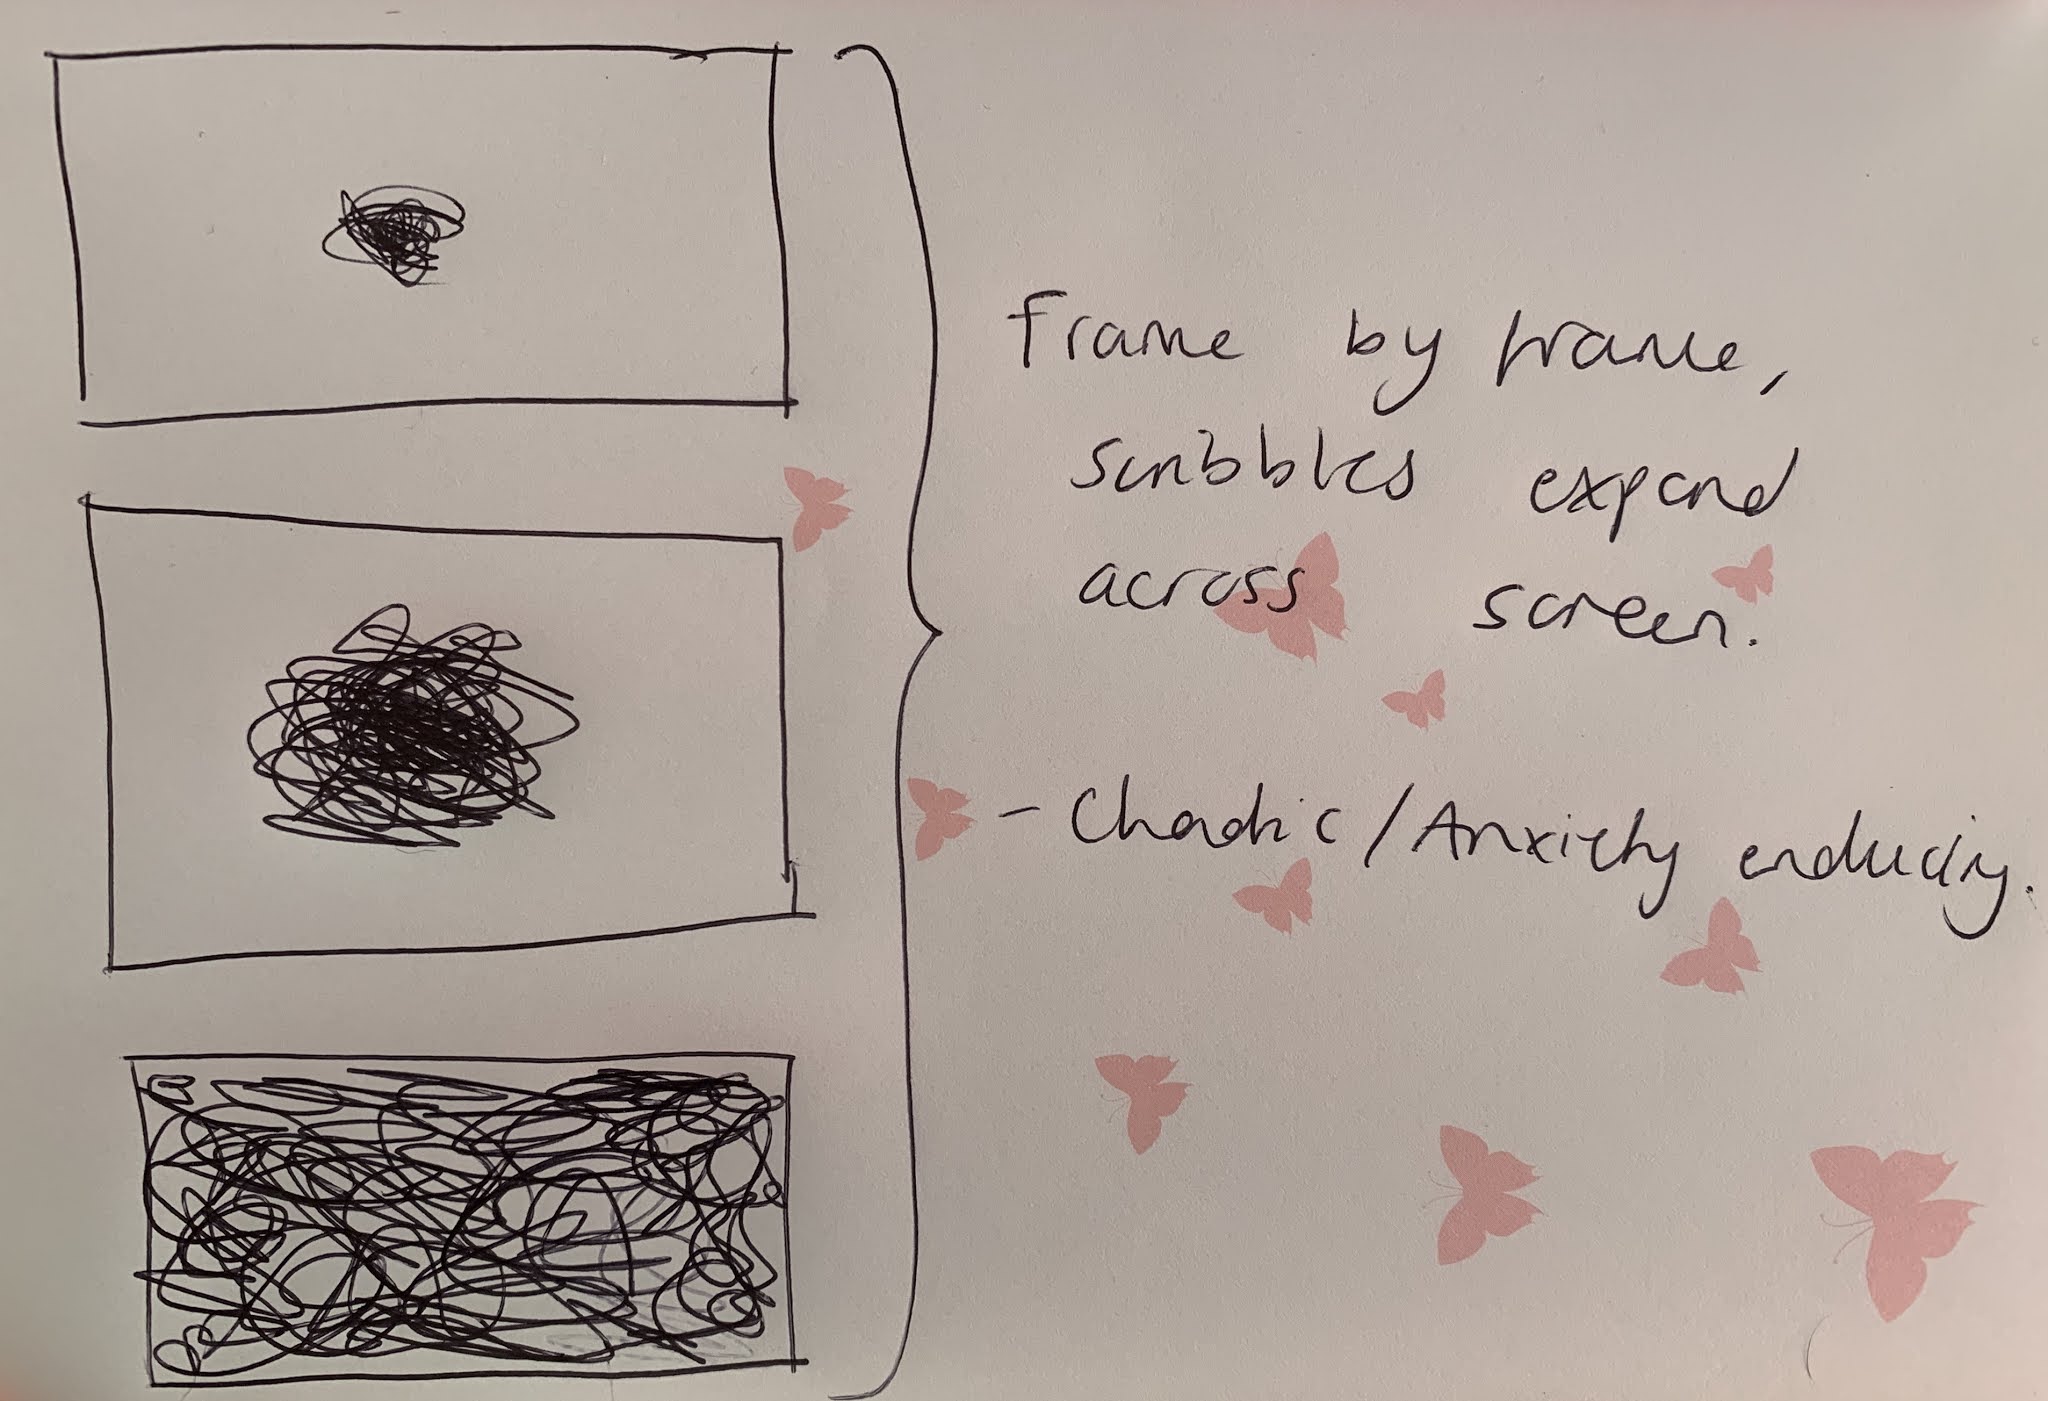 Frame by frame,
scribbles expand
across screen.
- Chaotic / Anxiety enducing.